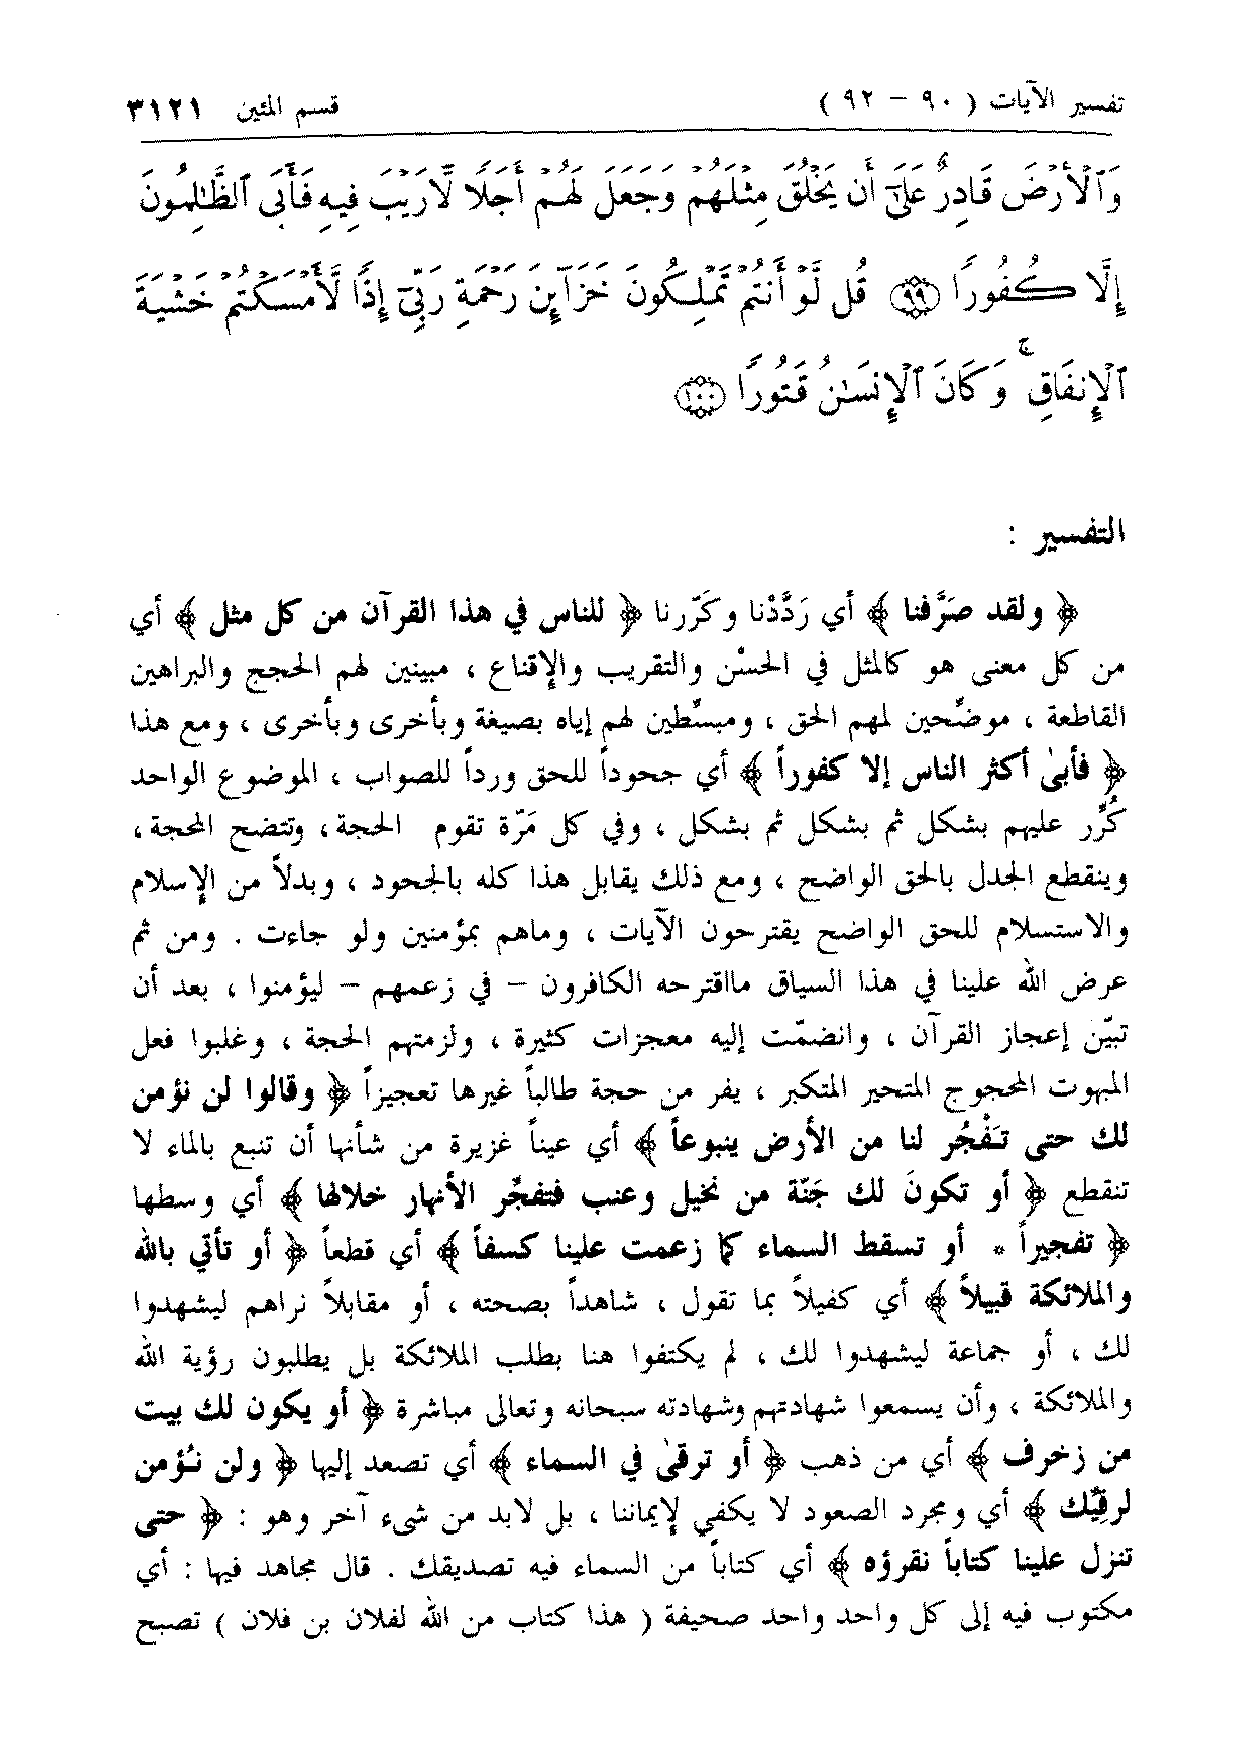 تفسير الآيات ( ٩٠ - ٩٢ ) قسم المئين ٣١٢١
وَٱلْأَرْضَ قَادِرٌ عَلَىٰٓ أَن يَخْلُقَ مِثْلَهُمْ وَجَعَلَ لَهُمْ أَجَلًا لَّا رَيْبَ فِيهِ فَأَبَى ٱلظَّٰلِمُونَ
إِلَّا كُفُورًا ﴿٩٩﴾ قُل لَّوْ أَنتُمْ تَمْلِكُونَ خَزَآئِنَ رَحْمَةِ رَبِّىٓ إِذًا لَّأَمْسَكْتُمْ خَشْيَةَ
ٱلْإِنفَاقِ ۚ وَكَانَ ٱلْإِنسَٰنُ قَتُورًا ﴿١٠٠﴾
التفسير :
﴿ ولقد صرَّفنا ﴾ أي رَدَّدْنا وكَرّرنا ﴿ للناس في هذا القرآن من كل مثل ﴾ أي
من كل معنى هو كالمثل في الحسْن والتقريب والإقناع ، مبينين لهم الحجج والبراهين
القاطعة ، موضّحين لهم الحق ، ومبسّطين لهم إياه بصيغة وبأخرى وبأخرى ، ومع هذا
﴿ فأبىٰ أكثر الناس إلا كفوراً ﴾ أي جحوداً للحق ورداً للصواب ، الموضوع الواحد
كُرِّر عليهم بشكل ثم بشكل ثم بشكل ، وفي كل مَرّة تقوم الحجة ، وتتضح المحجة ،
وينقطع الجدل بالحق الواضح ، ومع ذلك يقابل هذا كله بالجحود ، وبدلاً من الإسلام
والاستسلام للحق الواضح يقترحون الآيات ، وماهم بمؤمنين ولو جاءت . ومن ثم
عرض الله علينا في هذا السياق مااقترحه الكافرون - في زعمهم - ليؤمنوا ، بعد أن
تبيّن إعجاز القرآن ، وانضمّت إليه معجزات كثيرة ، ولزمتهم الحجة ، وغلبوا فعل
المبهوت المحجوج المتحير المتكبر ، يفر من حجة طالباً غيرها تعجيزاً ﴿ وقالوا لن نؤمن
لك حتى تَفْجُر لنا من الأرض ينبوعاً ﴾ أي عيناً غزيرة من شأنها أن تنبع بالماء لا
تنقطع ﴿ أو تكونَ لك جَنّة من نخيل وعنب فتفجِّر الأنهار خلالها ﴾ أي وسطها
﴿ تفجيراً * أو تسقط السماء كما زعمت علينا كسفاً ﴾ أي قطعاً ﴿ أو تأتي بالله
والملائكة قبيلاً ﴾ أي كفيلاً بما تقول ، شاهداً بصحته ، أو مقابلاً نراهم ليشهدوا
لك ، أو جماعة ليشهدوا لك ، لم يكتفوا هنا بطلب الملائكة بل يطلبون رؤية الله
والملائكة ، وأن يسمعوا شهادتهم وشهادته سبحانه وتعالى مباشرة ﴿ أو يكون لك بيت
من زخرف ﴾ أي من ذهب ﴿ أو ترقىٰ في السماء ﴾ أي تصعد إليها ﴿ ولن نؤمن
لرقيّك ﴾ أي ومجرد الصعود لا يكفي لإيماننا ، بل لابد من شيء آخر وهو : ﴿ حتى
تنزل علينا كتاباً نقرؤه ﴾ أي كتاباً من السماء فيه تصديقك . قال مجاهد فيها : أي
مكتوب فيه إلى كل واحد واحد صحيفة ( هذا كتاب من الله لفلان بن فلان ) تصبح